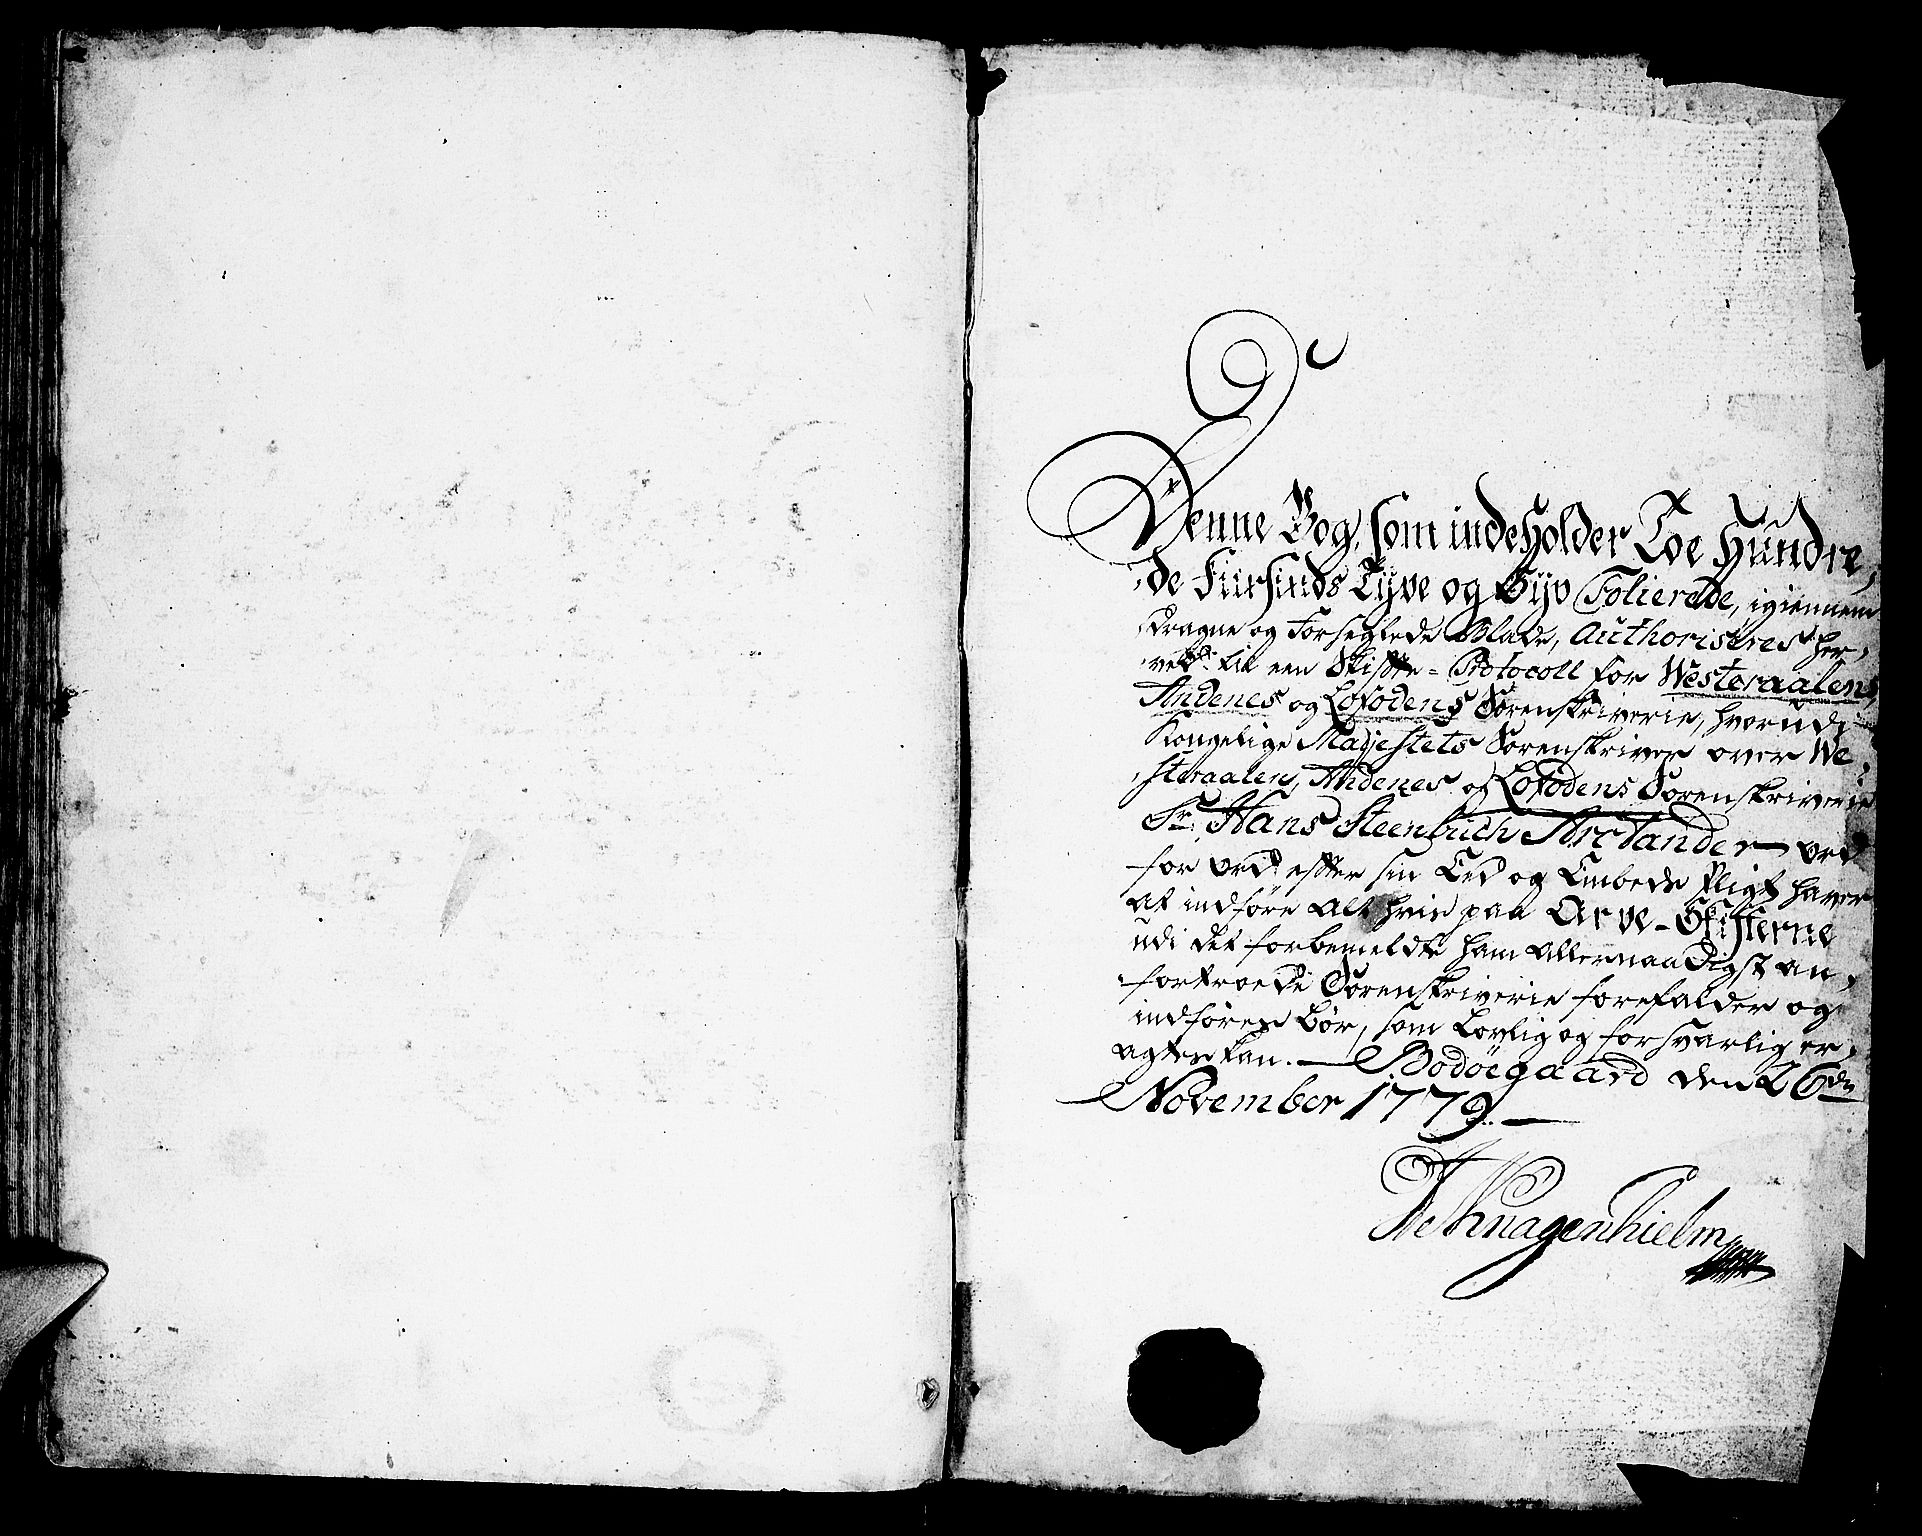 Denne Bog, som indeholder Toe Hundre,
de Fiirsinds Tyve og Syv Folierede, igiennem
dragne og Forseglede Blade, Authoriseres her,
ved til een Skifte-Protocoll for Westeraalens,
Andenes og Lofodens Sorenskriverie, hvorudi
Kongelige Majestets Sorenskriver over We-
steraalens, Andenes og Lofodens Sorenskriverie
Sr. Hans Steenbuch Arctander ord
for ord efter sin Eed og Embeds Pligt haver
at indføre alt hvis paa Arve-Skifterne
udi det forbemeldte ham allernaadigst an,
fortroede Sorenskriverie forefalder og
indføres bør, som lovlig og forsvarlig er,
agtes kan. Bodøegaard den 26de
November 1779.
de Knagenhielm